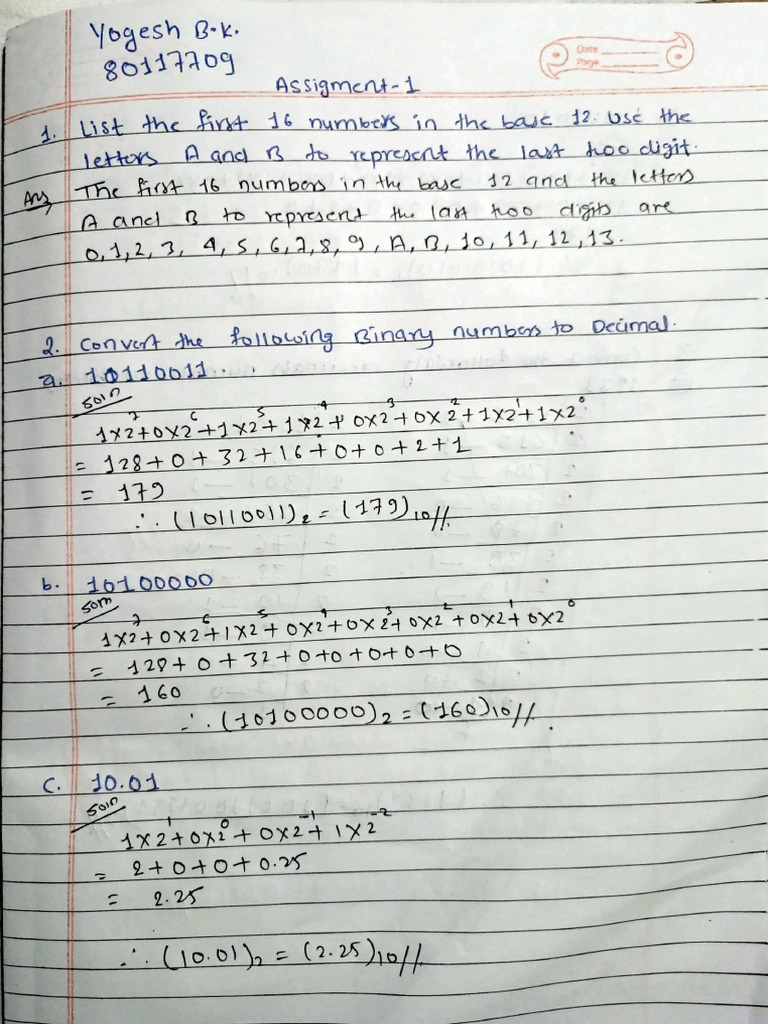 Yogesh B.K.
80117709
Date
Page
Assigment-1
1. List the first 16 numbers in the base 12. Use the
letters A and B to represent the last two digit.
Ans The first 16 numbers in the base 12 and the letters
A and B to represent the last two digits are
0,1,2,3, 4,5,6,7,8,9, A,B, 10, 11, 12, 13.
2. Convert the following Binary numbers to Decimal.
a. 10110011
soln
1×2⁷+0×2⁶+1×2⁵+1×2⁴+0×2³+0×2²+1×2¹+1×2⁰
= 128+0+32+16+0+0+2+1
= 179
∴ (10110011)₂ = (179)₁₀//.
b. 10100000
soln
1×2⁷+0×2⁶+1×2⁵+0×2⁴+0×2³+0×2²+0×2¹+0×2⁰
= 128+0+32+0+0+0+0+0
= 160
∴ (10100000)₂ = (160)₁₀//.
c. 10.01
soln
1×2¹+0×2⁰+0×2⁻¹+1×2⁻²
= 2+0+0+0.25
= 2.25
∴ (10.01)₂ = (2.25)₁₀//.